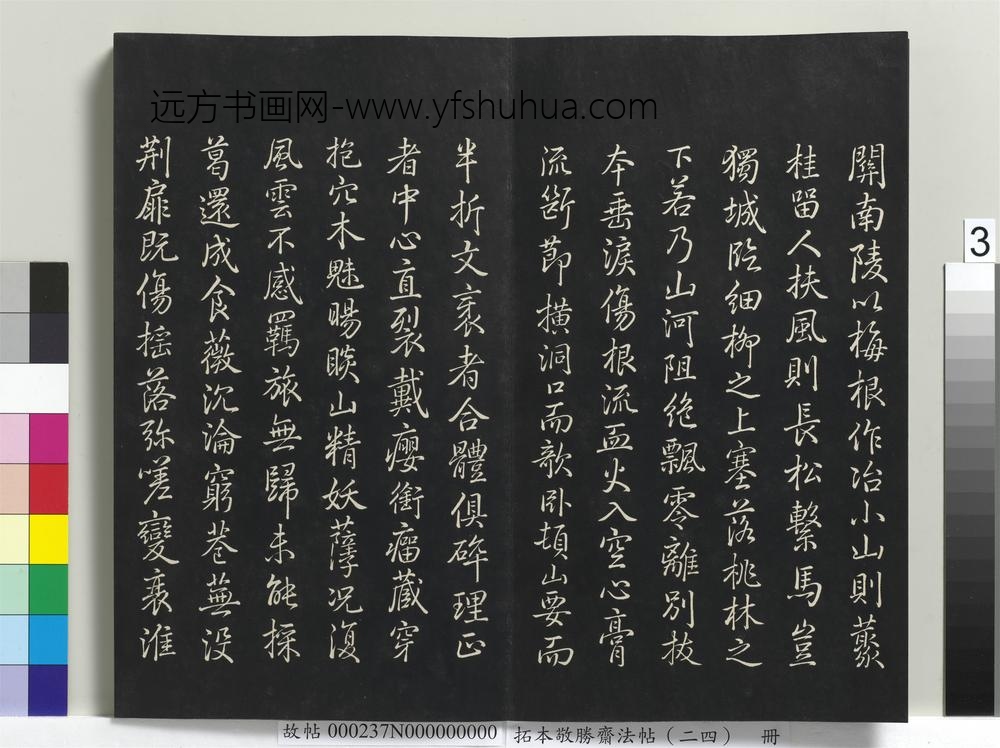 远方书画网-www.yfshuhua.com
關南陵以梅根作冶小山則叢
桂留人扶風則長松繫馬豈
獨城臨細柳之上塞落桃林之
下若乃山河阻絶飄零離別拔
本垂淚傷根流血火入空心膏
流斷節橫洞口而欹卧頓山要而
半折文衺者合體俱碎理正
者中心直裂戴癭銜瘤藏穿
抱穴木魅睗睒山精妖孽况復
風雲不感羈旅無歸未能採
葛還成食薇沉淪窮巷蕪没
荆扉既傷摇落弥嗟變衰淮
3
故帖 000237N000000000 拓本敬勝齋法帖（二四） 冊